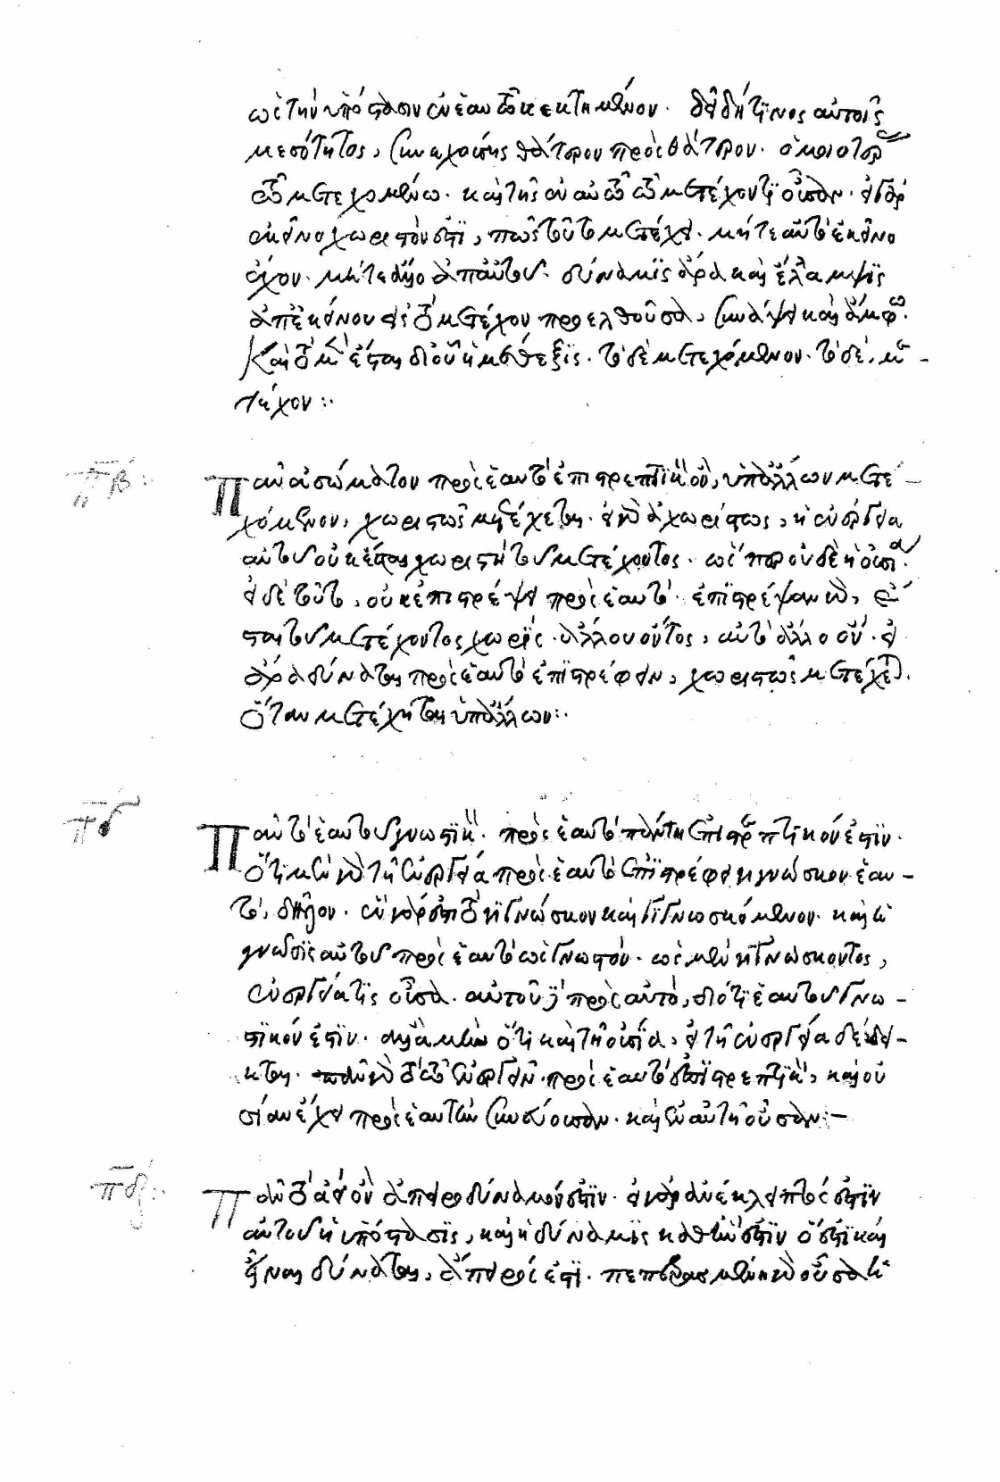 ὡς τὴν ὑπόστασιν ἐν ἑαυτῷ κεκτημένον. δεῖ δή τινος αὐτοῖς
μεσότητος, συνεχούσης θάτερον πρὸς θάτερον. ὁμοιοτέρας
τῷ μετεχομένῳ. καὶ τῆς ἐν αὐτῷ τῷ μετέχοντι οὖσαν. εἰ γὰρ
ἐκεῖνο χωριστόν ἐστι, πῶς τοῦτο μετέχει. μήτε αὐτὸ ἐκεῖνο
ἔχον. μήτε ἄλλο ἀπ' αὐτοῦ. δύναμις ἄρα καὶ ἔλλαμψις
ἀπ' ἐκείνου εἰς τὸ μετέχον προελθοῦσα, συνάψει καὶ ἄμφω.
Καὶ τὸ μὲν ἔσται δι' οὗ ἡ μέθεξις. τὸ δὲ μετεχόμενον. τὸ δὲ, με-
τέχον :.
πβ :
Πᾶν ἀσώματον πρὸς ἑαυτὸ ἐπιστρεπτικὸν ὄν, ὑπ' ἄλλων μετε-
χόμενον, χωριστῶς μετέχεται. εἰ γὰρ ἀχωρίστως, ἡ ἐνέργεια
αὐτοῦ οὐκ ἔσται χωριστὴ τοῦ μετέχοντος. ὥσπερ οὐδὲ ἡ οὐσία.
εἰ δὲ τοῦτο, οὐκ ἐπιστρέψει πρὸς ἑαυτό. ἐπιστρέψαν γὰρ, ἔ-
σται τοῦ μετέχοντος χωρίς. ἄλλου ὄντος, αὐτὸ ἄλλο ὄν. εἰ
ἄρα δύναται πρὸς ἑαυτὸ ἐπιστρέφειν, χωριστῶς μετέχεται.
ὅταν μετέχηται ὑπ' ἄλλων :.
πγ
Πᾶν τὸ ἑαυτοῦ γνωστικὸν. πρὸς ἑαυτὸ πάντη ἐπιστρεπτικόν ἐστιν.
ὅτι μὲν γὰρ τῇ ἐνεργείᾳ πρὸς ἑαυτὸ ἐπιστρέφει γινώσκον ἑαυ-
τό, δῆλον. ἓν γάρ ἐστι τὸ γινώσκον καὶ γινωσκόμενον. καὶ ἡ
γνῶσις αὐτοῦ πρὸς ἑαυτὸ ὡς γνωστόν. ὡς μὲν γινώσκοντος,
ἐνέργειά τις οὖσα. αὐτοῦ δὲ πρὸς αὐτό, διότι ἑαυτοῦ γνω-
στικόν ἐστιν. ἀλλὰ μὴν ὅτι καὶ τῇ οὐσίᾳ, εἰ τῇ ἐνεργείᾳ δέδει-
κται. πᾶν γὰρ τὸ τῷ ἐνεργεῖν πρὸς ἑαυτὸ ἐπιστρεπτικὸν, καὶ οὐ
σίαν ἔχει πρὸς ἑαυτὴν συννεύουσαν. καὶ ἐν αὐτῇ οὖσαν :-
πδ :
Πᾶν τὸ ἀεὶ ὂν ἀπειροδύναμόν ἐστιν. εἰ γὰρ ἀνέκλειπτός ἐστιν
αὐτοῦ ἡ ὑπόστασις, καὶ ἡ δύναμις καθ' ἣν ἐστὶν ὅ ἐστι καὶ
εἶναι δύναται, ἄπειρός ἐστι. πεπερασμένη γὰρ οὖσα ἡ